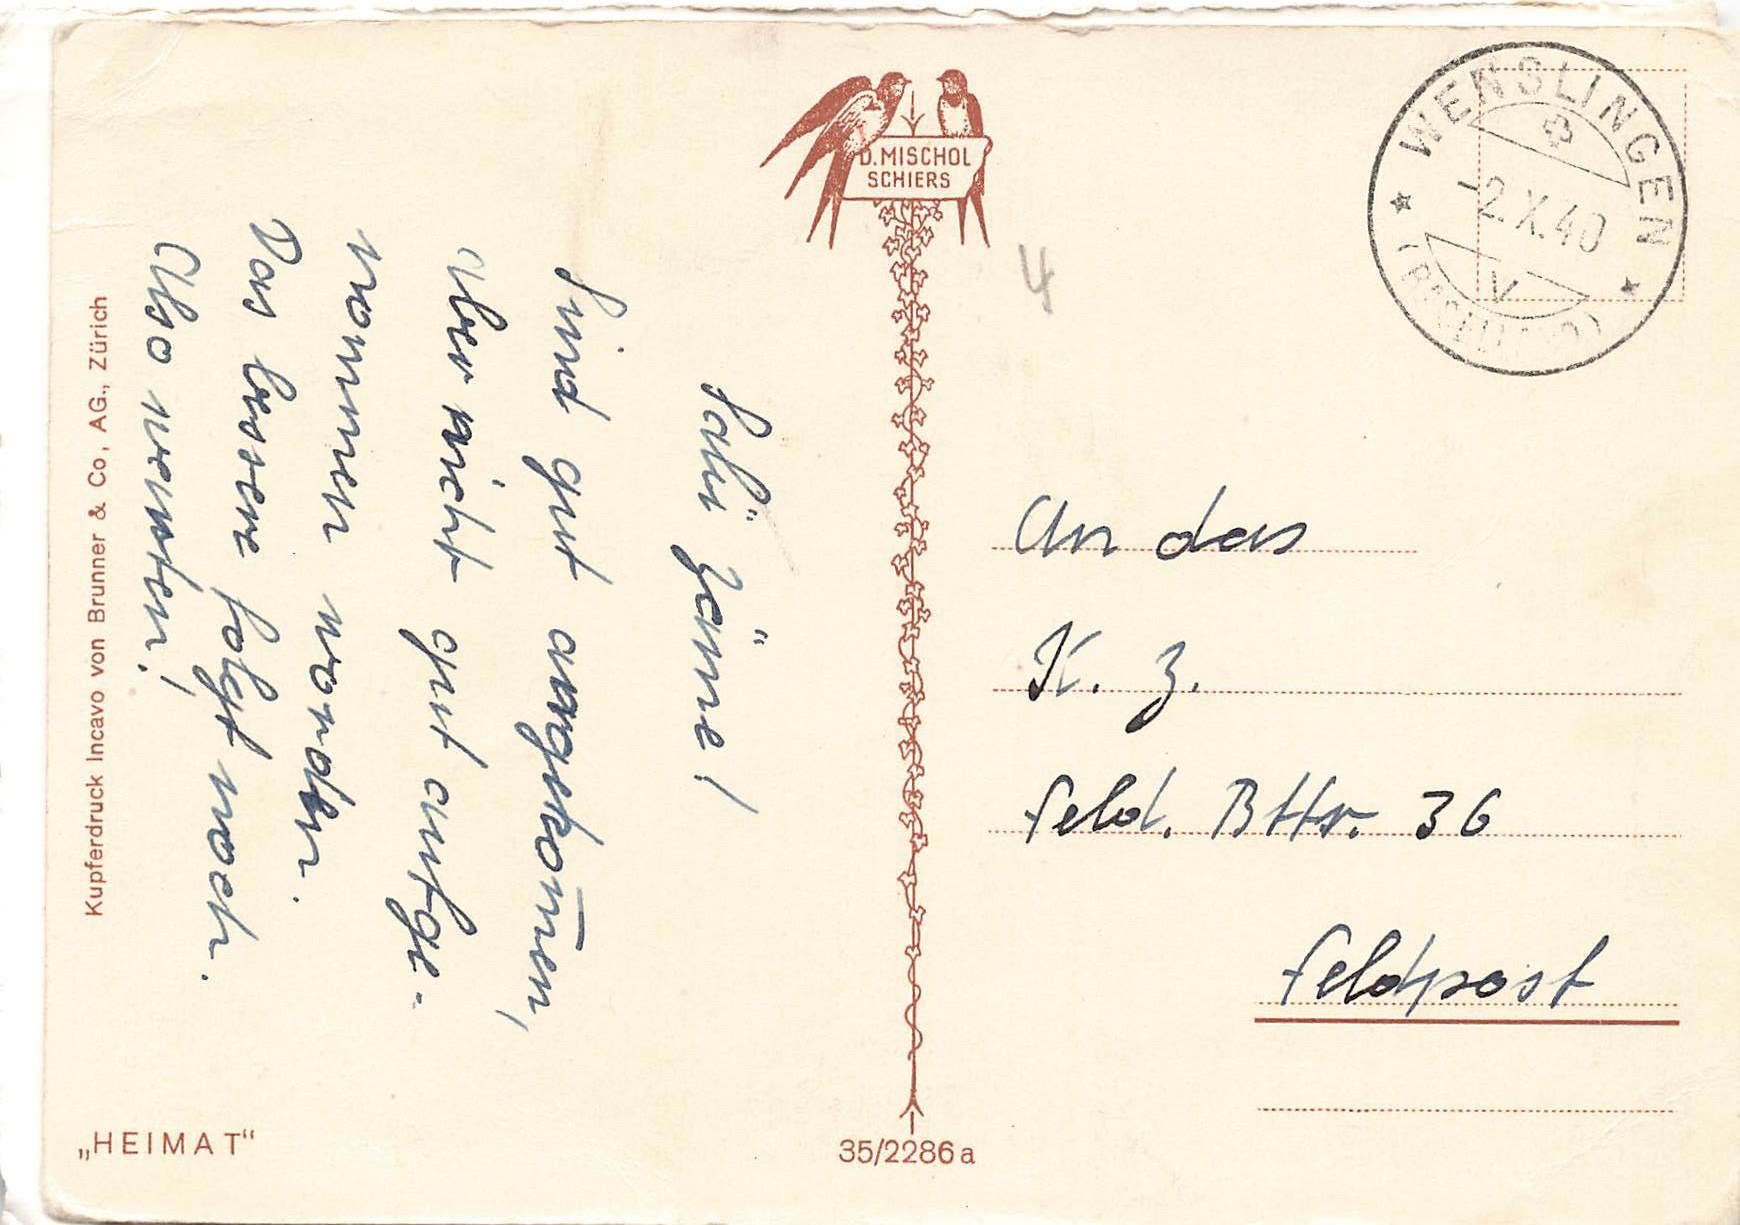 Kupferdruck Incavo von Brunner & Co, AG., Zürich
Salü Zäme!
Sind gut angekom̅en,
aber nicht gut aufge-
nommen worden.
Das bessere folgt noch.
Also warten!
„HEIMAT“
D. MISCHOL
SCHIERS
35/2286a
4
WENSLINGEN
-2.X.40
V
An das
K. Z.
Feld. Bttr. 36
Feldpost